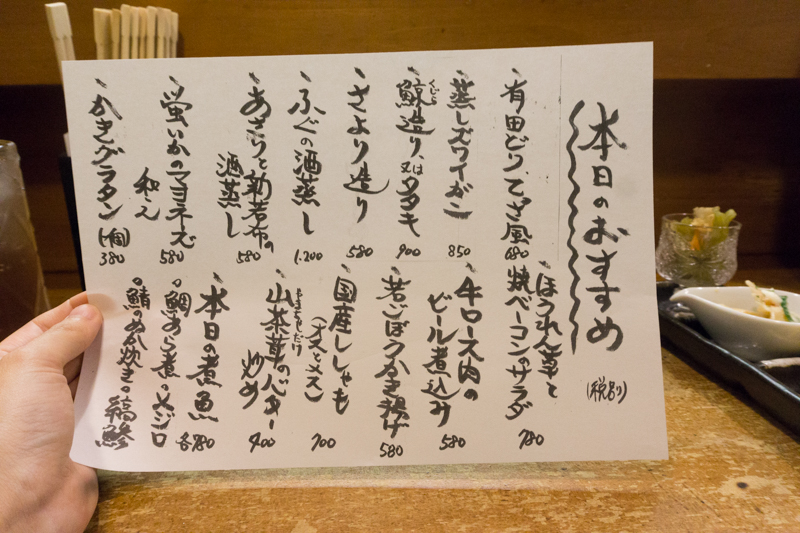 本日のおすすめ
(税別)
有田どり、てば風 680
蒸しズワイガニ 850
鯨造り、又はタタキ 900
くじら
さより造り 580
ふぐの酒蒸し 1.200
あさりと新若布の
酒蒸し 580
蛍いかのマヨネーズ
和え 580
かきグラタン (1個) 380
ほうれん草と
焼ベーコンのサラダ 780
牛ロース肉の
ビール煮込み 580
若ごぼうかき揚げ 580
国産ししゃも
(オスとメス) 700
山茶茸のバター
やまちゃたけ
炒め 400
本日の煮魚 各780
鯛あら煮 メジロ
鯖のぬか炊き